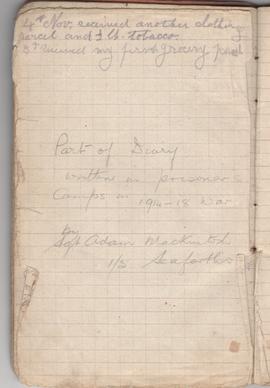 4th Nov. received another clothing
parcel and 1 lb. tobacco.
5th received my first grocery parcel
Part of Diary
written in prisoners
Camps in 1914-18 War
by
Sgt Adam Mackintosh
1/5 Seaforths